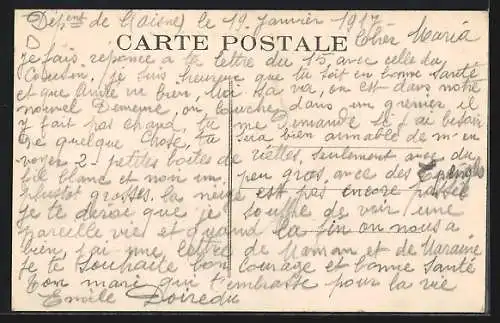 Dépent de l'Aisne, le 19 Janvier 1917
CARTE POSTALE
Chèr Maria
je fais réponce a te lettre du 15, avec celle du
Cousson, je suis heureuse que tu soit en bonne santé
et que va bien, Moi sa va, on est dans notre
nouvel Demeure, on couche dans un grenier, il
y fait pas chaud, tu me Demande si j'ai besoin
De quelque chose, tu sera bien aimable de m'en
voyer 2 petites boites de vielles, seulement avec du
fil blanc et non un peu gros, avec des Epingles
plustot grosses, la neige est pas encore passée
je te dirai que je souffre de voir une
pareille vie et quand la fin on nous a
bien, j'ai une lettre de Maman et de Maraine
je te souhaite bon Courage et bonne Santé
Ton mari qui t'embrasse pour la vie
Emile